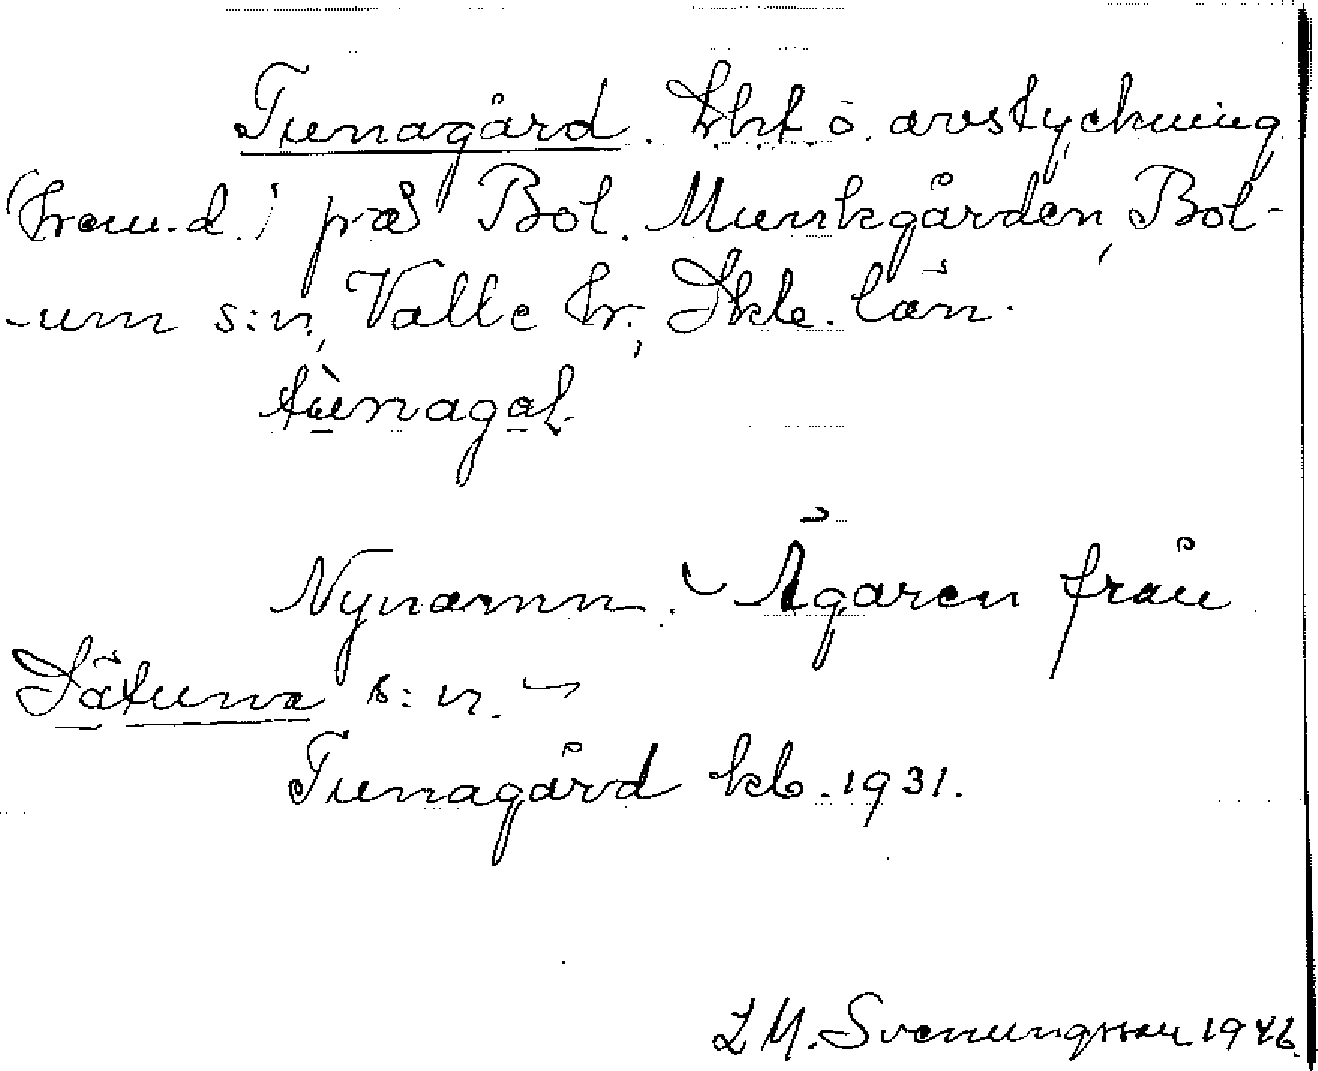 Tunagård. Lht ö. avstyckning
(fram.d.) på Bol. Munkgården, Bol-
-um s:n, Valle hr., Skbs. län.
tùnagaḷ
Nynamn. Ägaren från
Sätuna s:n.
Tunagård kb. 1931.
L M. Svenungsson 1946.